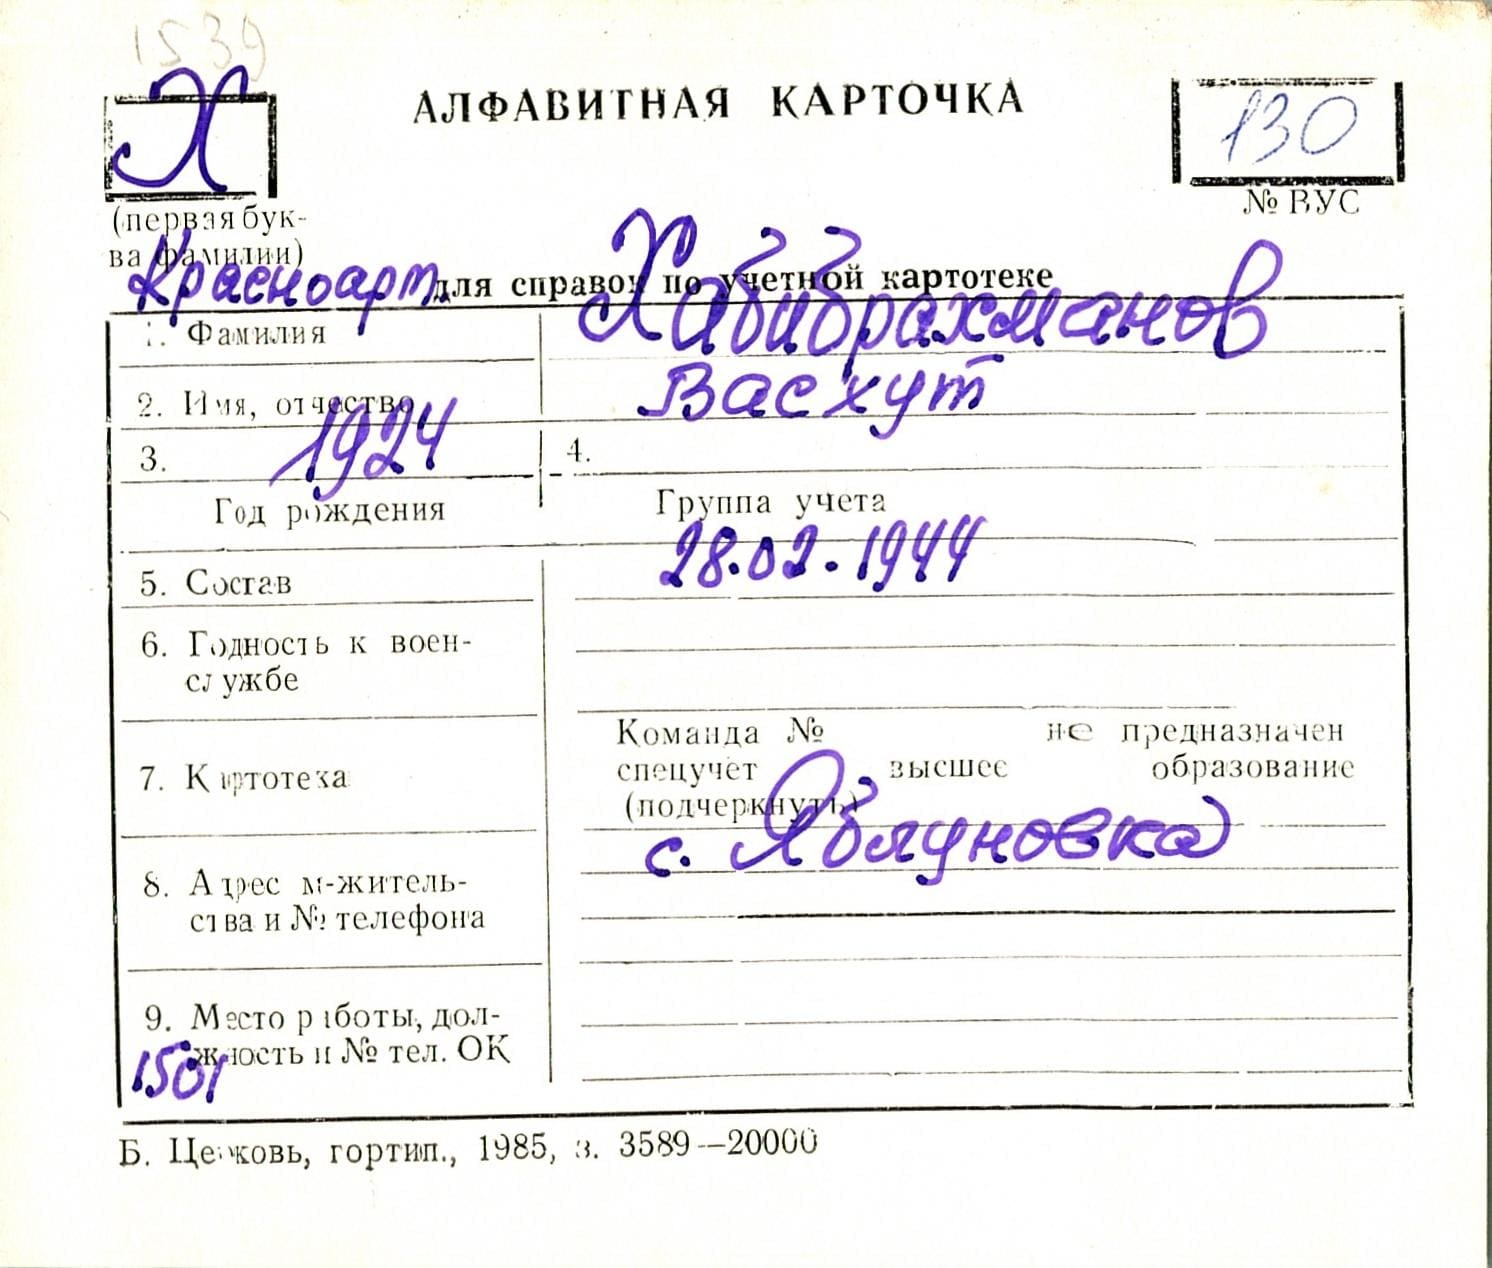 1539
Х
АЛФАВИТНАЯ КАРТОЧКА
130
(первая бук-
ва фамилии)
№ ВУС
Красноарт.
для справок по учетной картотеке
1. Фамилия
Хабибрахманов
2. Имя, отчество
Васхут
3. 1924
4.
Год рождения
Группа учета
28.02.1944
5. Состав
6. Годность к воен-
службе
Команда № не предназначен
7. Картотека
спецучет высшее образование
(подчеркнуть)
с. Яблуновка
8. Адрес м-житель-
ства и № телефона
9. Место работы, дол-
жность и № тел. ОК
1501
Б. Церковь, гортип., 1985, з. 3589—20000